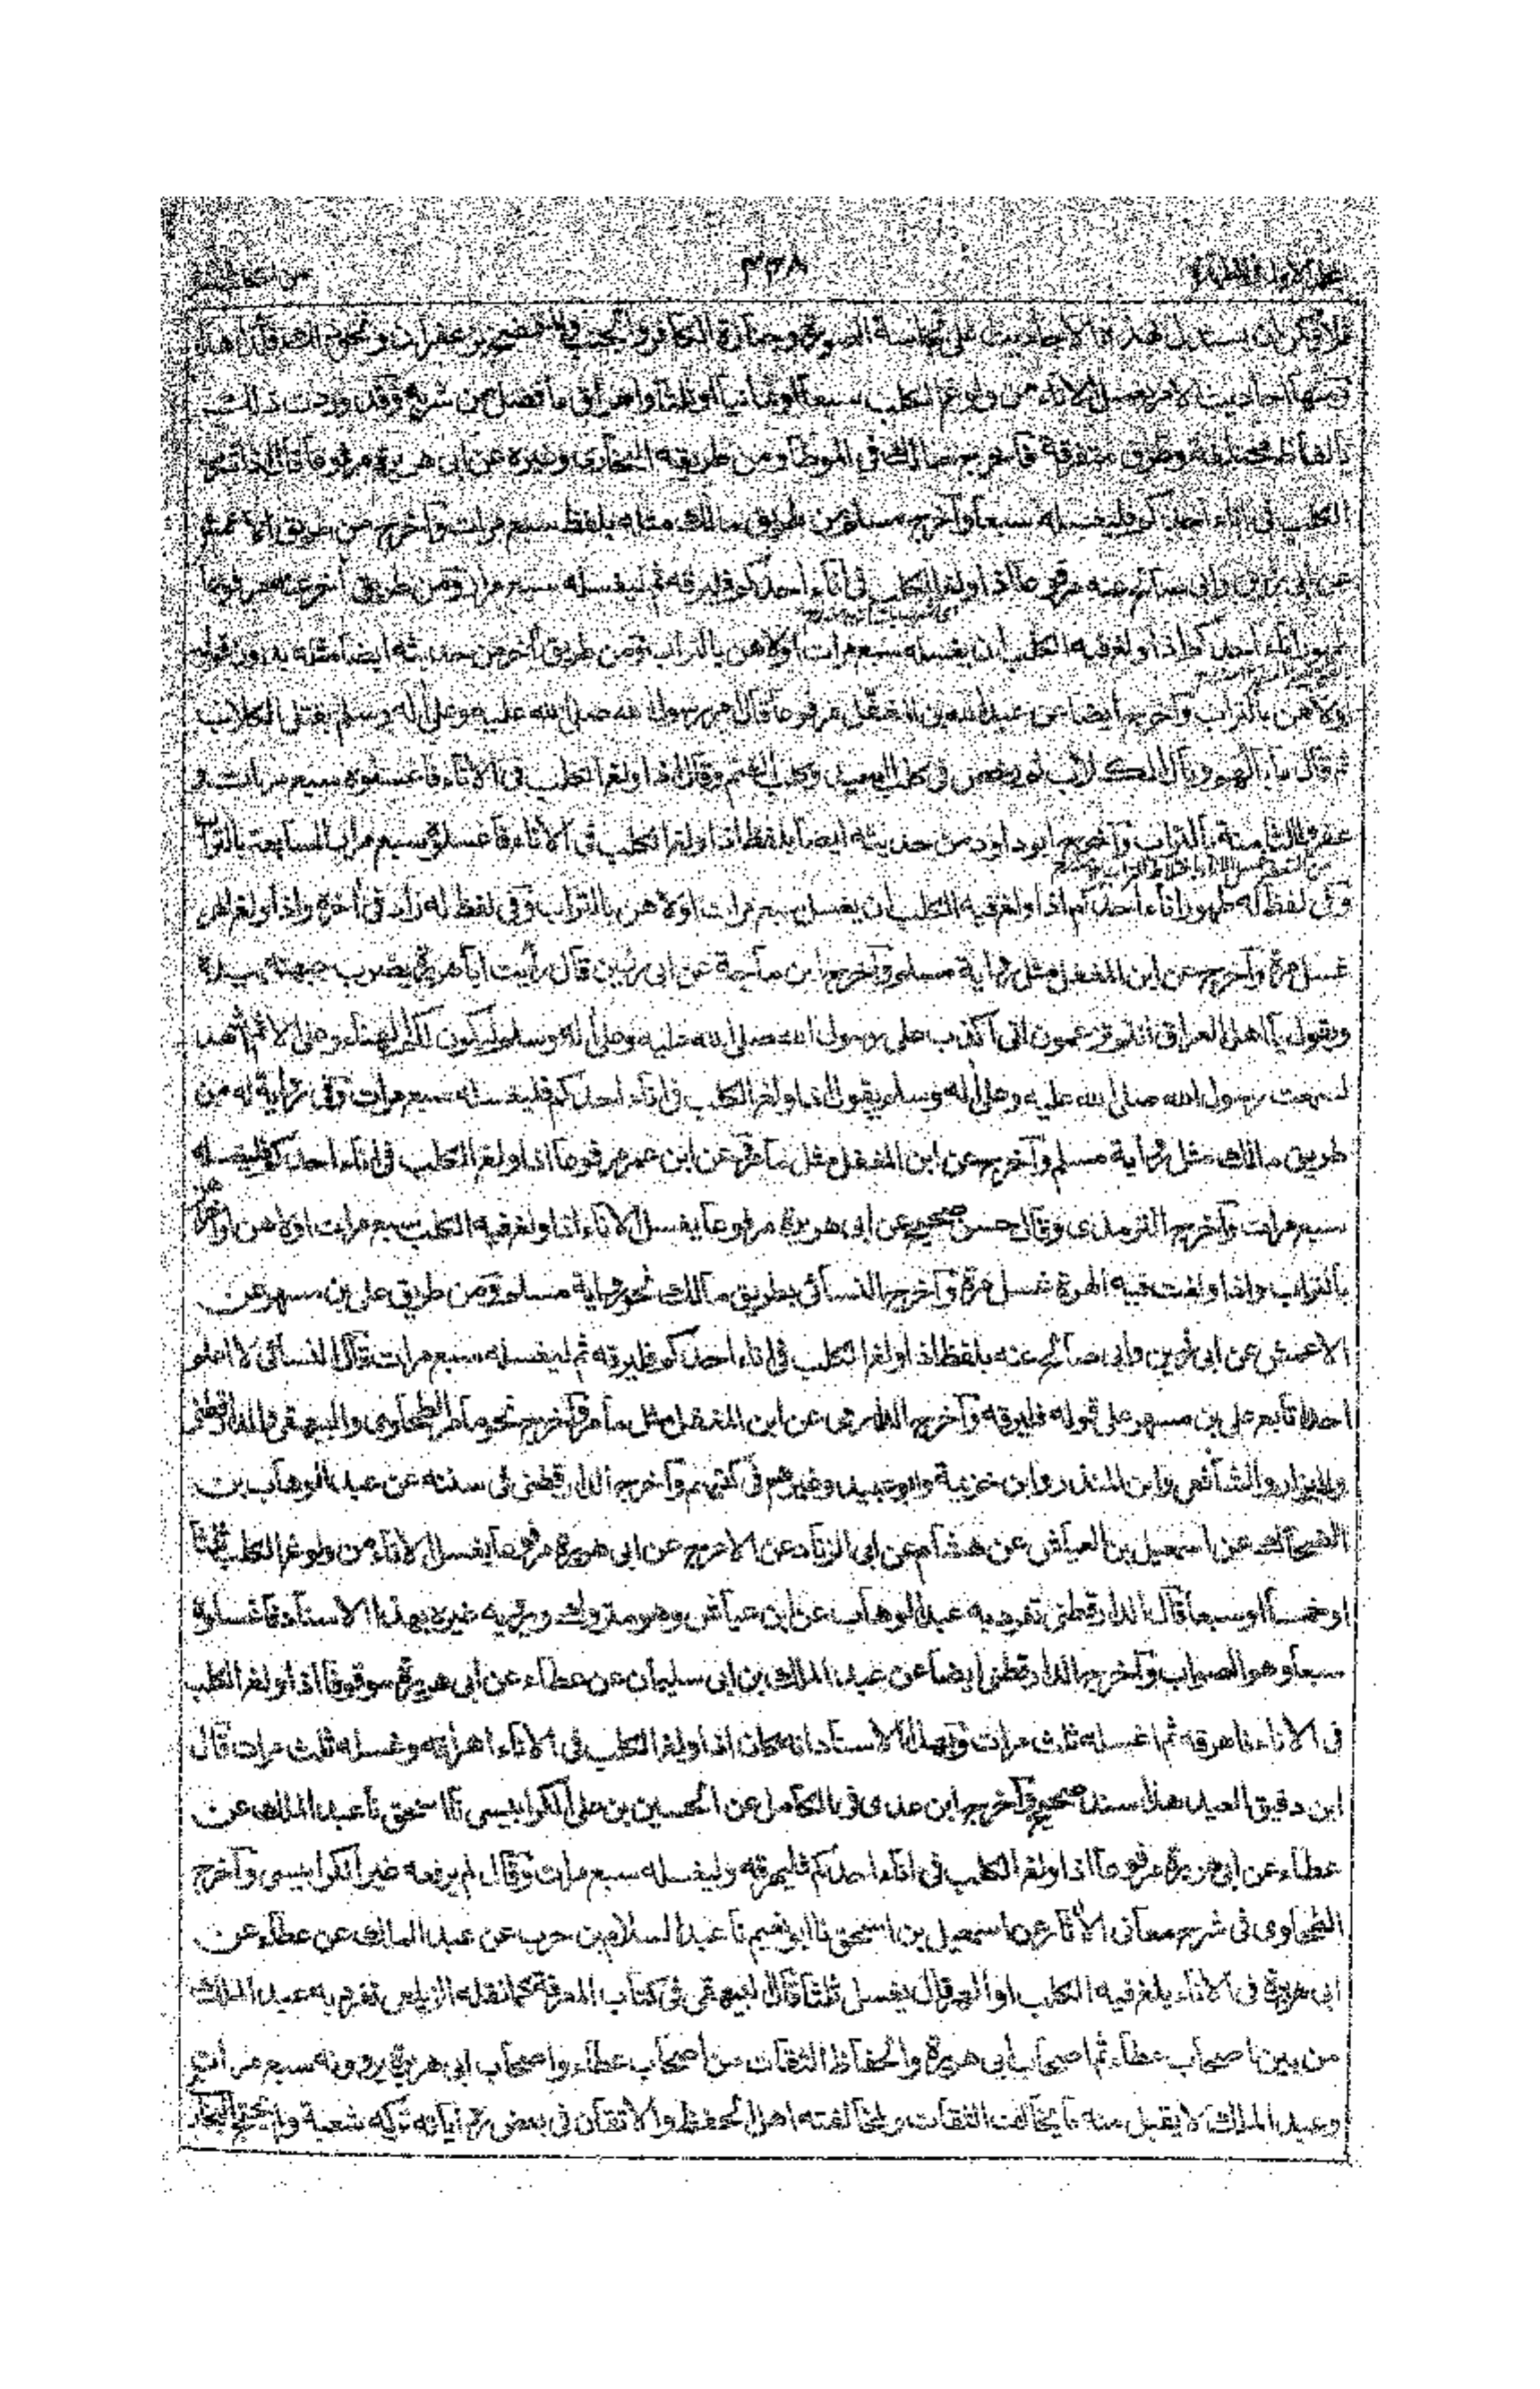 ٤٣٨
فلا يمكن ان يستدل بهذه الاحاديث على نجاسة الصورة وجنازة الكافر والجنب
ومنها احاديث الامر بغسل الاناء من ولوغ الكلب سبعا او ثمانيا او ثلثا واهراق ما فضل من شربه وقد وردت ذلك
بالفاظ مختلفة وطرق متفرقة فاخرج مالك في الموطأ ومن طريقه البخاري وغيره عن ابي هريرة مرفوعا اذا شرب
الكلب في اناء احدكم فليغسله سبعا واخرجه مسلم من طريق مالك مثله بلفظ سبع مرات واخرج من طريق الاعمش
عن ابي رزين وابي صالح عنه مرفوعا اذا ولغ الكلب في اناء احدكم فليرقه ثم ليغسله سبع مرار ومن طريق اخر عنه مرفوعا
طهور اناء احدكم اذا ولغ فيه الكلب ان يغسله سبع مرات اولاهن بالتراب ومن طريق اخر من حديثه ايضا مثله بدون قوله
اولاهن بالتراب واخرج ايضا عن عبد الله بن المغفل مرفوعا قال امر رسول الله صلى الله عليه وعلى اله وسلم بقتل الكلاب
ثم قال ما بالهم وبال الكلاب ثم رخص في كلب الصيد وكلب الغنم وقال اذا ولغ الكلب في الاناء فاغسلوه سبع مرات و
عفروه الثامنة بالتراب واخرجه ابو داود من حديثه ايضا بلفظ اذا ولغ الكلب في الاناء فاغسلوه سبع مرار السابعة بالتراب
وفي لفظ له طهور اناء احدكم اذا ولغ فيه الكلب ان يغسل سبع مرات اولاهن بالتراب وفي لفظ له زاد في اخره واذا ولغ الهر
غسل مرة واخرج عن ابن المغفل مثل رواية مسلم واخرج ابن ماجة عن ابي رزين قال رأيت ابا هريرة يضرب جبهته بيده
ويقول يا اهل العراق انتم تزعمون اني اكذب على رسول الله صلى الله عليه وعلى اله وسلم ليكون لكم المهنأ وعلي الاثم اشهد
لسمعت رسول الله صلى الله عليه وعلى اله وسلم يقول اذا ولغ الكلب في اناء احدكم فليغسله سبع مرات وفي رواية له من
طريق مالك مثل رواية مسلم واخرج عن ابن المغفل مثل ما مر وعن ابن عمر مرفوعا اذا ولغ الكلب في اناء احدكم فليغسله
سبع مرات واخرج الترمذي وقال حسن صحيح عن ابي هريرة مرفوعا يغسل الاناء اذا ولغ فيه الكلب سبع مرات اولاهن او اخراهن
بالتراب واذا ولغت فيه الهرة غسل مرة واخرج النسائي بطريق مالك نحو رواية مسلم ومن طريق علي بن مسهر عن
الاعمش عن ابي رزين وابي صالح عنه بلفظ اذا ولغ الكلب في اناء احدكم فليرقه ثم ليغسله سبع مرات قال النسائي لا اعلم
احدا تابع علي بن مسهر على قوله فليرقه واخرج الدارمي عن ابن المغفل مثل ما مر واخرج نحو ما مر الطحاوي والبيهقي والدارقطني
والبزار والشافعي وابن المنذر وابن خزيمة وابو عبيد وغيرهم في كتبهم واخرج الدارقطني في سننه عن عبد الوهاب بن
الضحاك عن اسمعيل بن العياش عن هشام عن ابي الزناد عن الاعرج عن ابي هريرة مرفوعا يغسل الاناء من ولوغ الكلب ثلثا
او خمسا او سبعا قال الدارقطني تفرد به عبد الوهاب عن ابن عياش وهو متروك ويرويه غيره بهذا الاسناد فاغسلوه
سبعا وهو الصواب واخرج الدارقطني ايضا عن عبد الملك بن ابي سليمان عن عطاء عن ابي هريرة موقوفا اذا ولغ الكلب
في الاناء فاهرقه ثم اغسله ثلث مرات وبهذا الاسناد انه كان اذا ولغ الكلب في الاناء اهراقه وغسله ثلث مرات قال
ابن دقيق العيد هذا سند صحيح واخرج ابن عدي في الكامل عن الحسين بن علي الكرابيسي نا اسحق نا عبد الملك عن
عطاء عن ابي هريرة مرفوعا اذا ولغ الكلب في اناء احدكم فليهرقه وليغسله سبع مرات وقال لم يرفعه غير الكرابيسي واخرج
الطحاوي في شرح معاني الاثار عن اسمعيل بن اسحق نا ابو نعيم نا عبد السلام بن حرب عن عبد الملك عن عطاء عن
ابي هريرة في الاناء يلغ فيه الكلب او الهر قال يغسل ثلثا قال البيهقي في كتاب المعرفة كما نقله الزيلعي تفرد به عبد الملك
من بين اصحاب عطاء ثم اصحاب ابي هريرة والحفاظ الثقات من اصحاب عطاء واصحاب ابي هريرة يروونه سبع مرات
وعبد الملك لا يقبل منه ما يخالف الثقات ولمخالفته اهل الحفظ والاتقان في بعض رواياته تركه شعبة ولم يحتج به البخاري